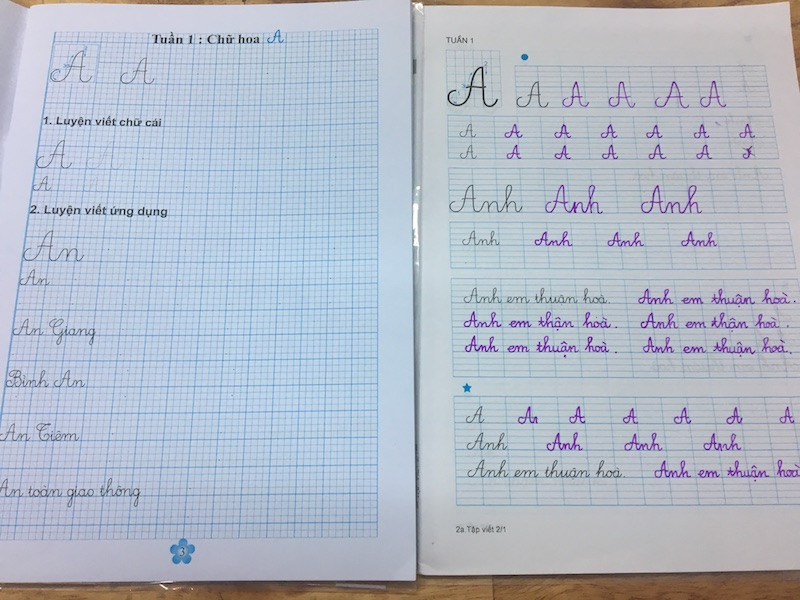 Tuần 1 : Chữ hoa A
A A
1. Luyện viết chữ cái
A A
A A
2. Luyện viết ứng dụng
An
An
An Giang
Bình An
An Tiêm
An toàn giao thông
3
TUẦN 1
A A A A A A
A A A A A A A
A A A A A A
Anh Anh Anh
Anh Anh Anh Anh
Anh em thuận hoà. Anh em thuận hoà.
Anh em thận hoà. Anh em thận hoà.
Anh em thuận hoà. Anh em thuận hoà.
A An A A A A A
Anh Anh Anh Anh
Anh em thuận hoà. Anh em thuận hoà
2a Tập viết 2/1